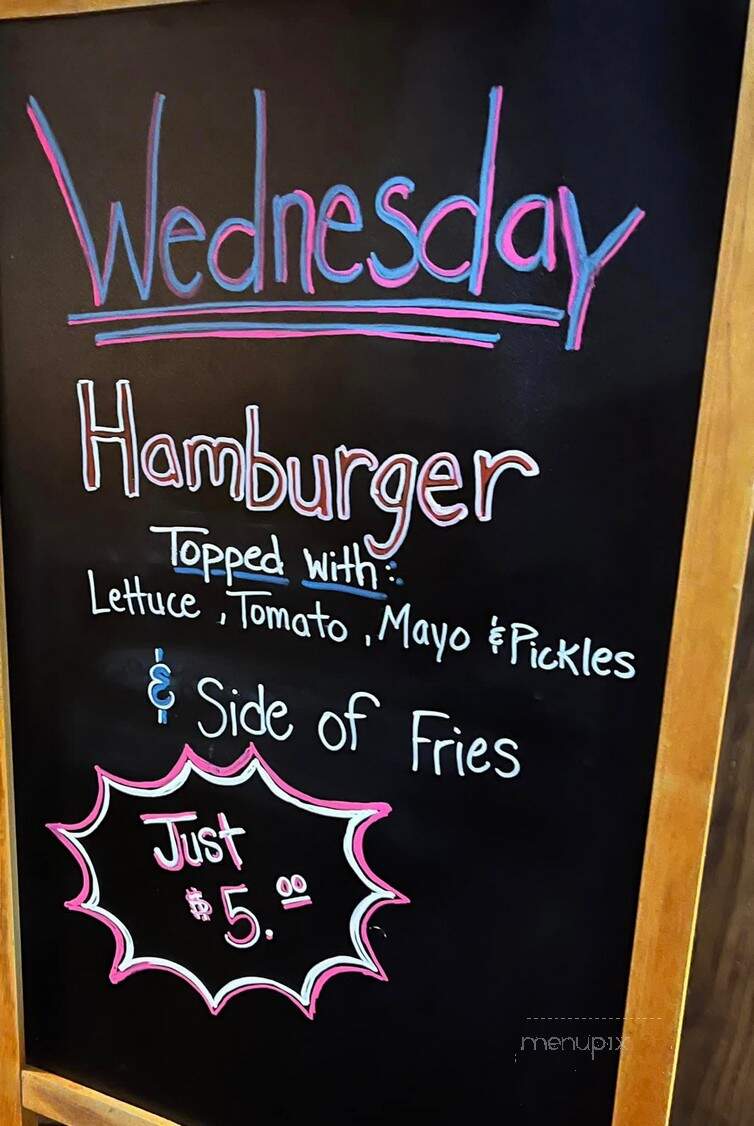 Wednesday
Hamburger
Topped with:
Lettuce, Tomato, Mayo & Pickles
& Side of Fries
Just
$5.00
menupix